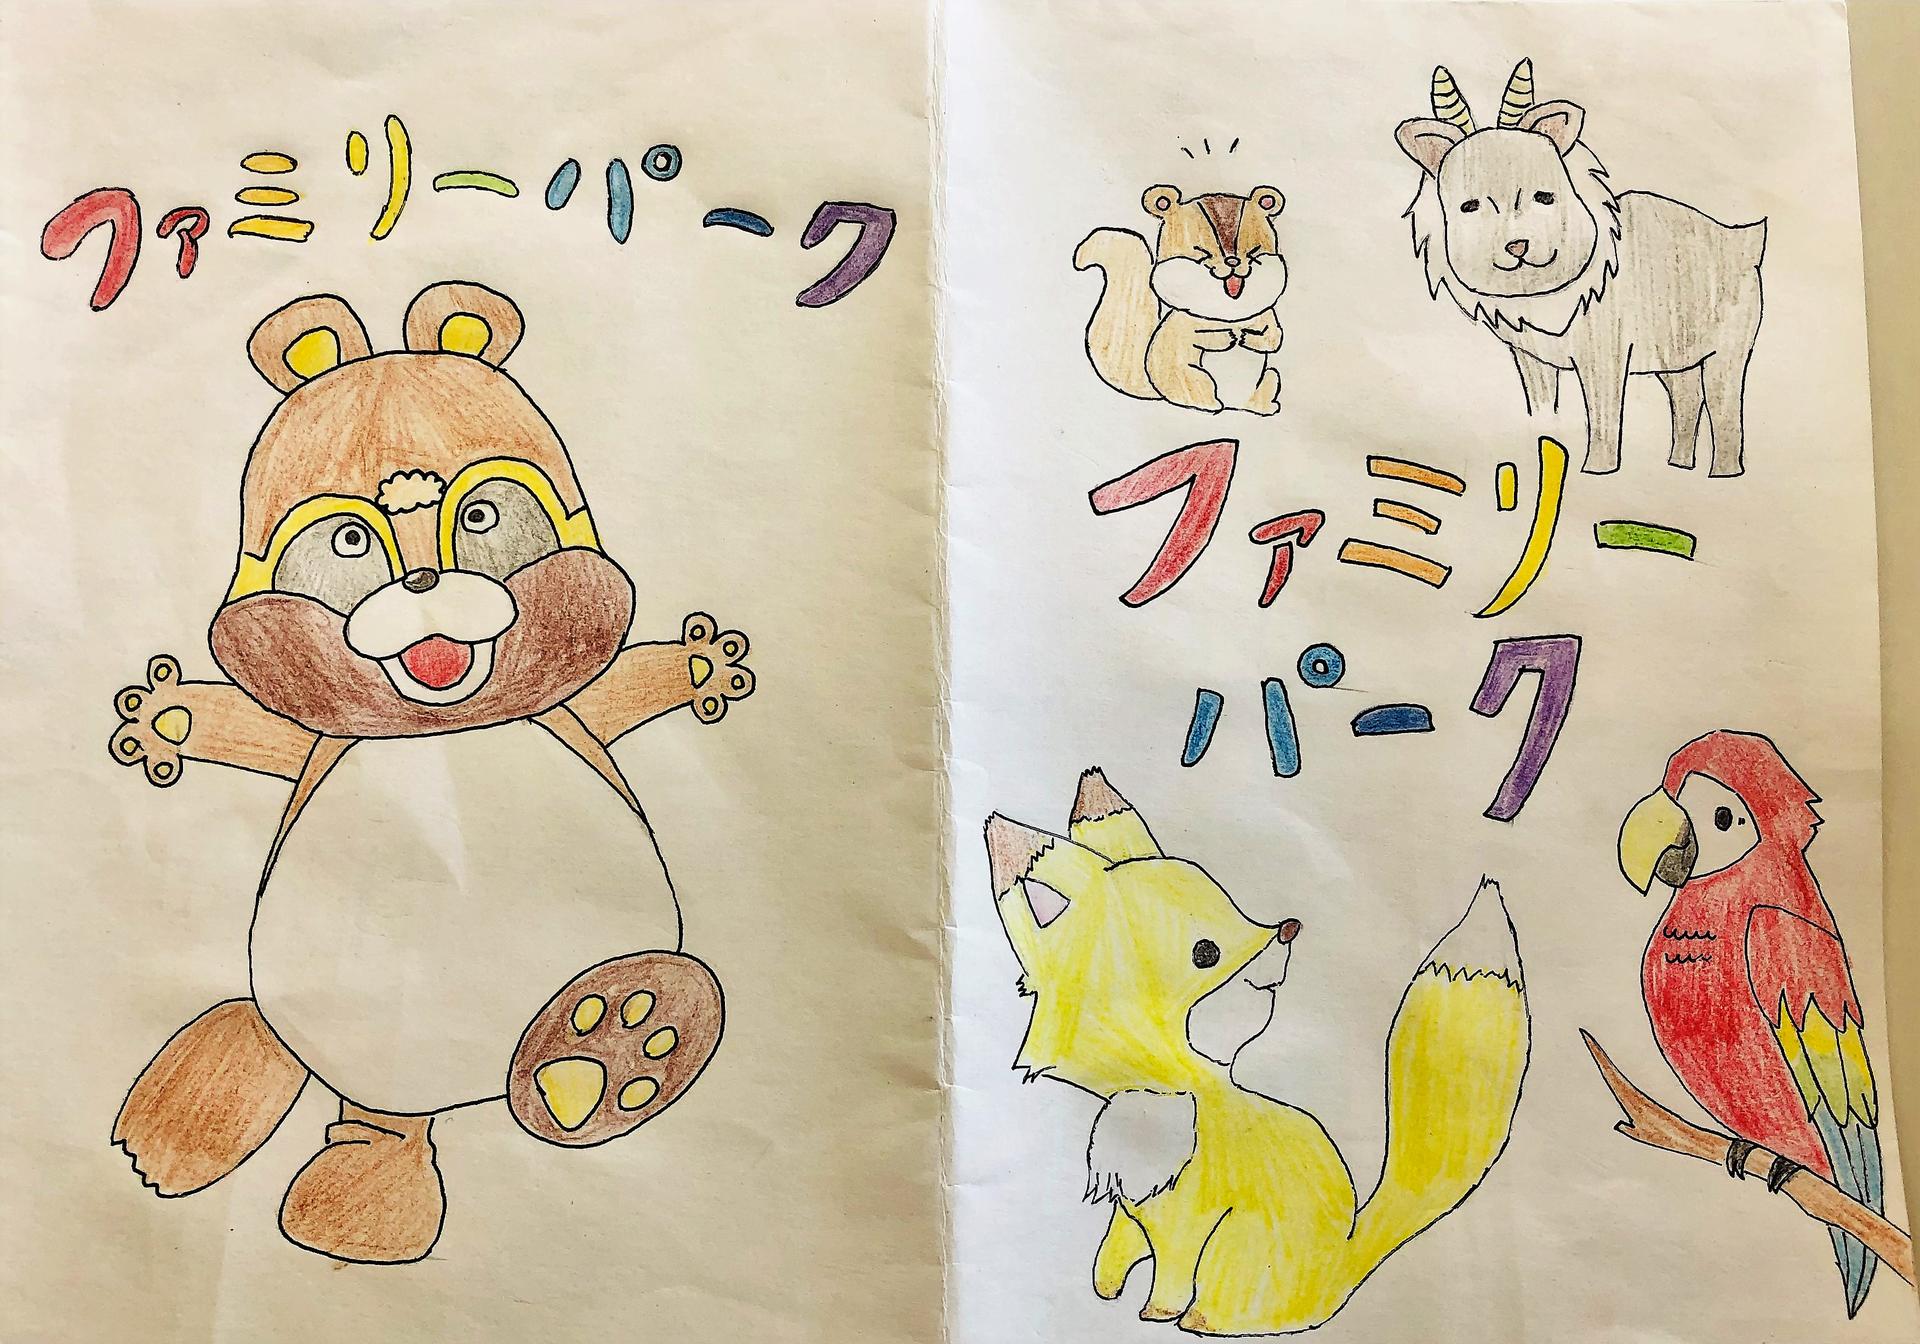 ファミリーパーク
ファミリー
パーク